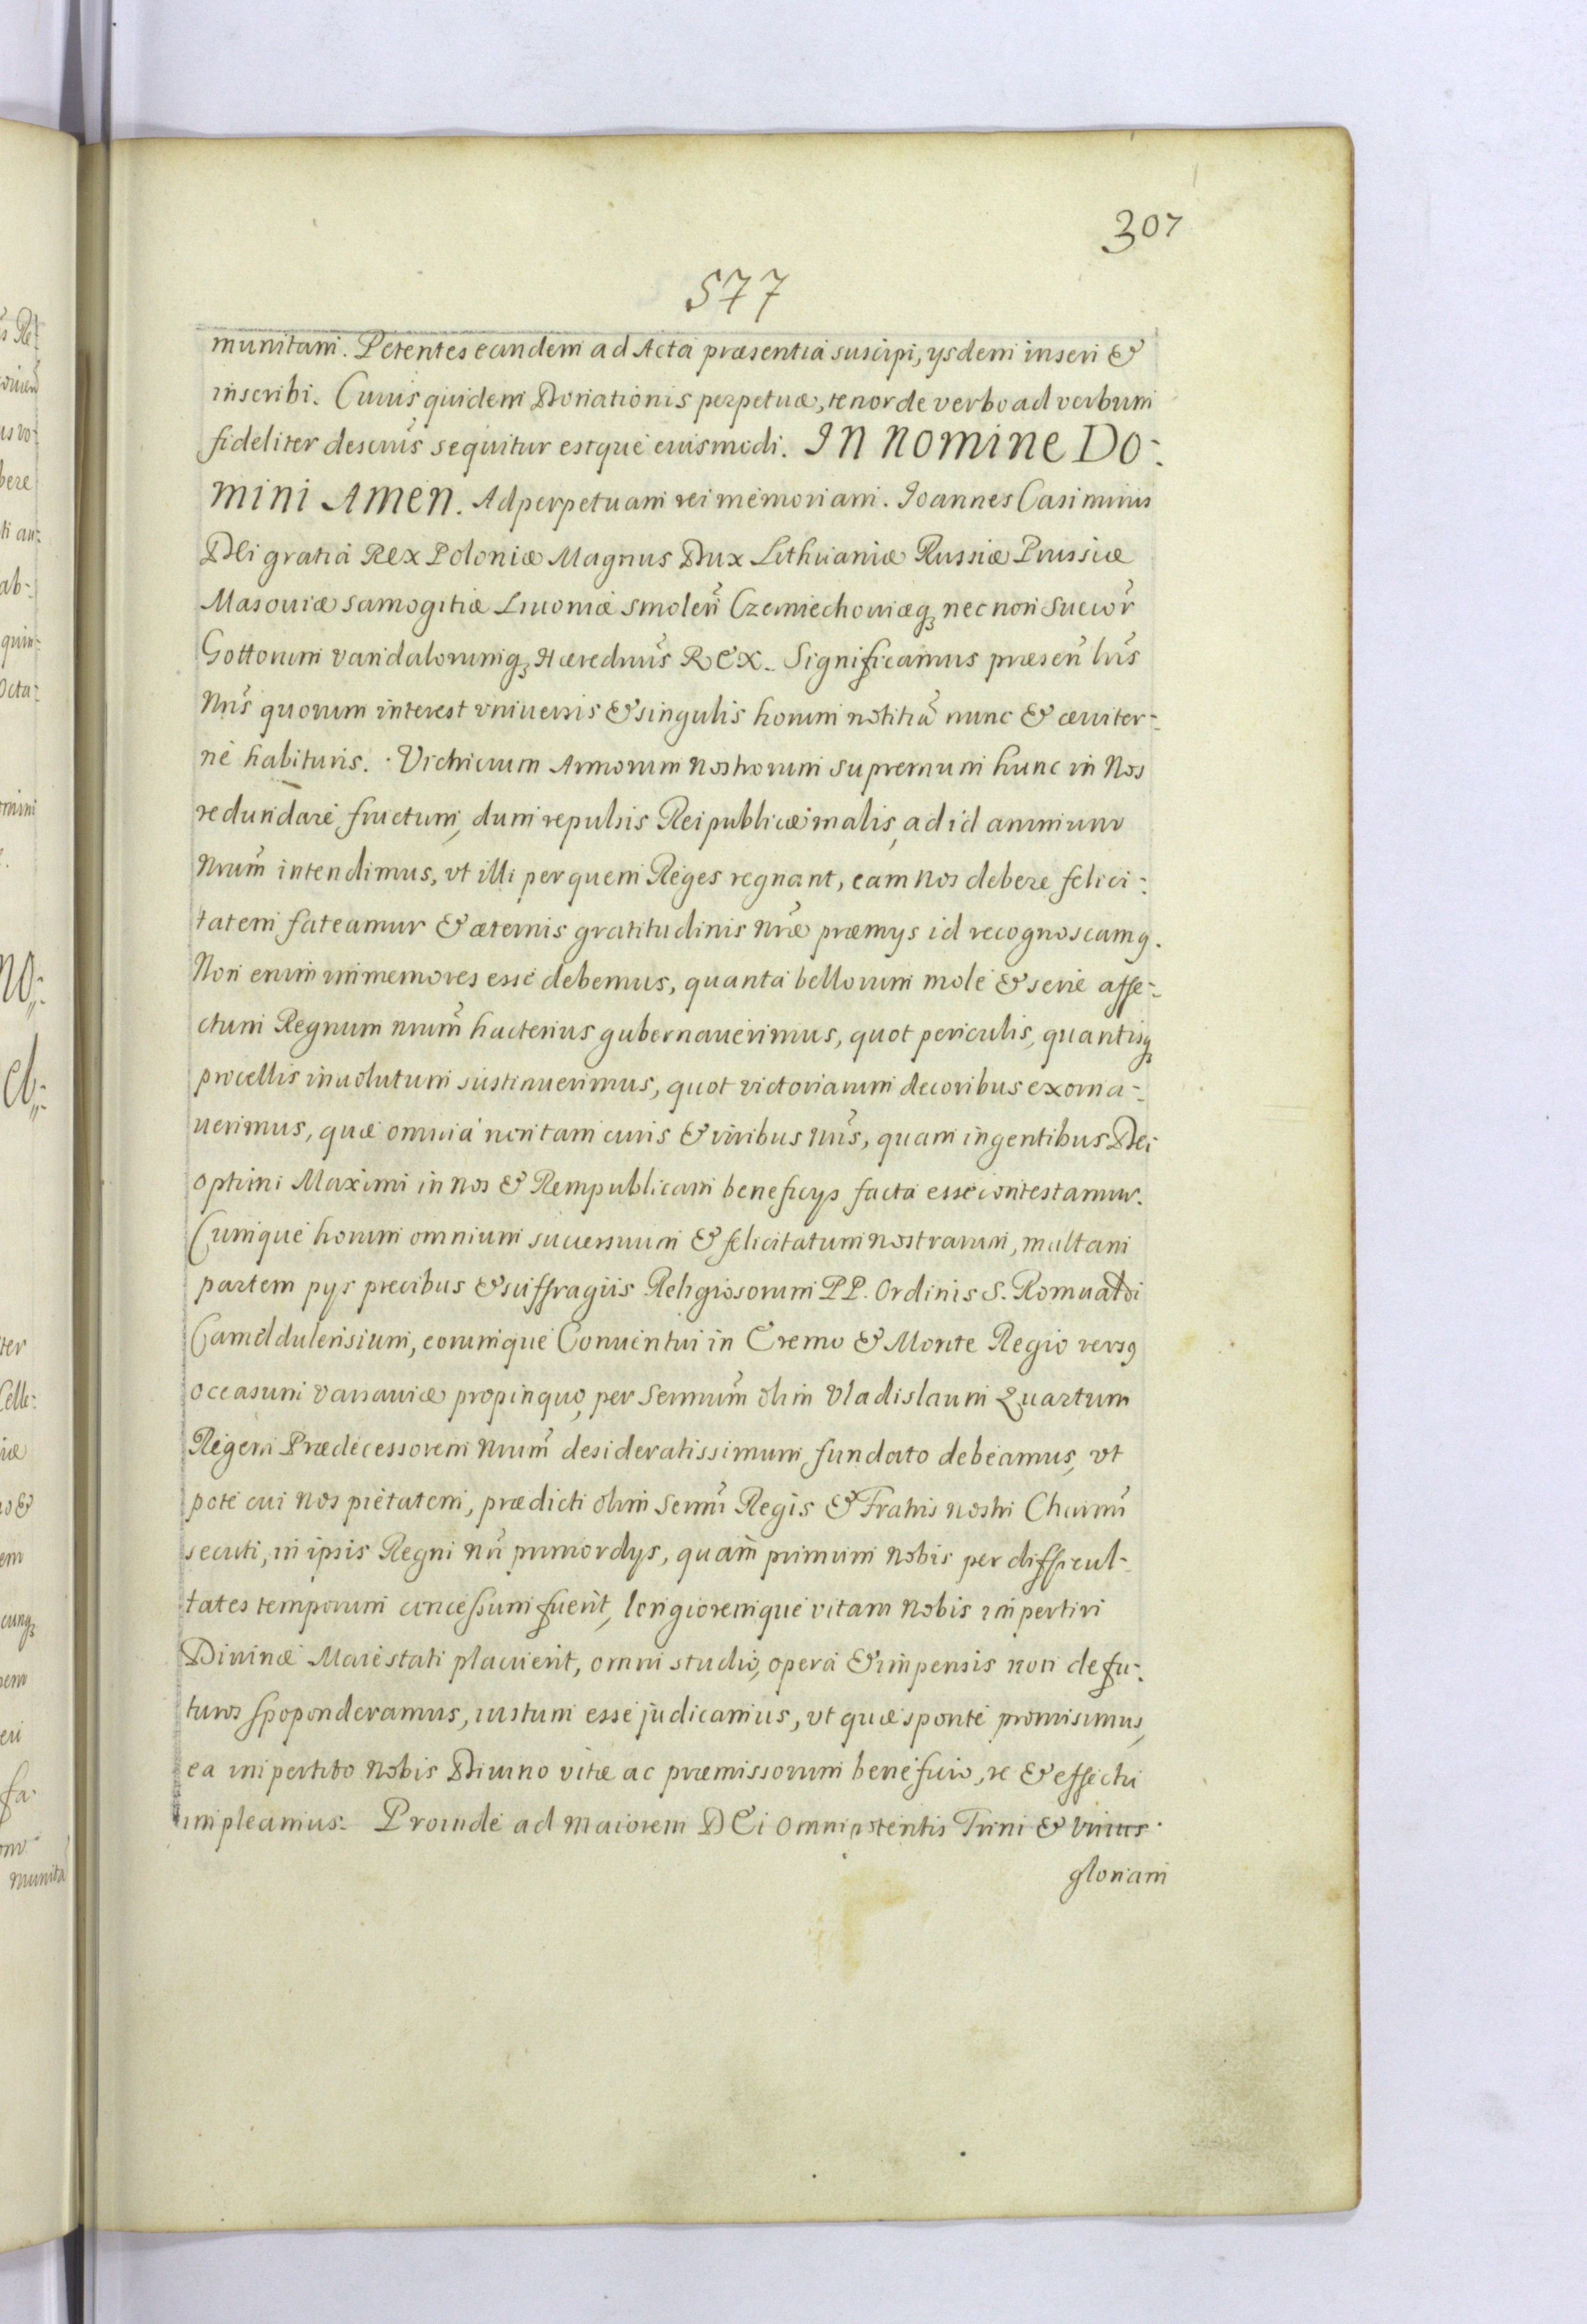 307
577
munitam. Petentes eandem ad Acta præsentia suscipi, ysdem inseri &
inscribi. Cuius quidem Donationis perpetuæ, tenor de verbo ad verbum
fideliter descrius̃ sequitur estque eiusmodi. In nomine Do-
mini Amen. Ad perpetuam rei memoriam. Joannes Casimirus
DEi gratia Rex Poloniæ Magnus Dux Lithuaniæ Russiæ Prussiæ
Masouiæ Samogitiæ Liuoniæ Smoleñ Czerniechouiæq; nec non Suecor̃
Gottorum Vandalorumq; Hæredrius̃ REX. Significamus præseñ lrĩs
Nrĩs quorum interest vniuersis & singulis horum notitiã nunc & æuiter-
ne habituris. Victricium Armorum Nostrorum supremum hunc in Nos
redundare fructum, dum repulsis Reipublicæ malis, ad id animum
Nrum̃ intendimus, vt illi per quem Reges regnant, eam Nos debere felici-
tatem fateamur & æternis gratitudinis Nræ̃ præmys id recognoscamq.
Non enim immemores esse debemus, quanta bellorum mole & serie affe-
ctum Regnum Nrum̃ hactenus gubernauerimus, quot periculis, quantisq;
procellis inuolutum sustinuerimus, quot victoriarum decoribus exorna-
uerimus, quæ omnia non tam curis & viribus Nrĩs, quam ingentibus Dei
optimi Maximi in nos & Rempublicam beneficys facta esse contestamur.
Cumque horum omnium successuum & felicitatum nostrarum, multam
partem pys precibus & suffragiis Religiosorum PP. Ordinis S. Romualdi
Cameldulensium, eorumque Conuentui in Eremo & Monte Regio versq
occasum Varsauiæ propinquo, per Sermum̃ olim Vladislaum Quartum
Regem Prædecessorem Nrum̃ desideratissimum, fundato debeamus, vt
pote cui Nos pietatem, prædicti olim Sermĩ Regis & Fratris nostri Charmĩ
secuti, in ipsis Regni Nrĩ primordys, quam primum Nobis per difficul-
tates temporum concessum fuerit, longioremque vitam Nobis impertiri
Diuinæ Maiestati placuerit, omni studio, opera & impensis non defu-
turos spoponderamus, iustum esse judicamus, vt quæ sponte promisimus,
ea impertito Nobis Diuino vitæ ac præmissorum beneficio, re & effectu
impleamus. Proinde ad maiorem DEi omnipotentis Trini & Vnius
gloriam